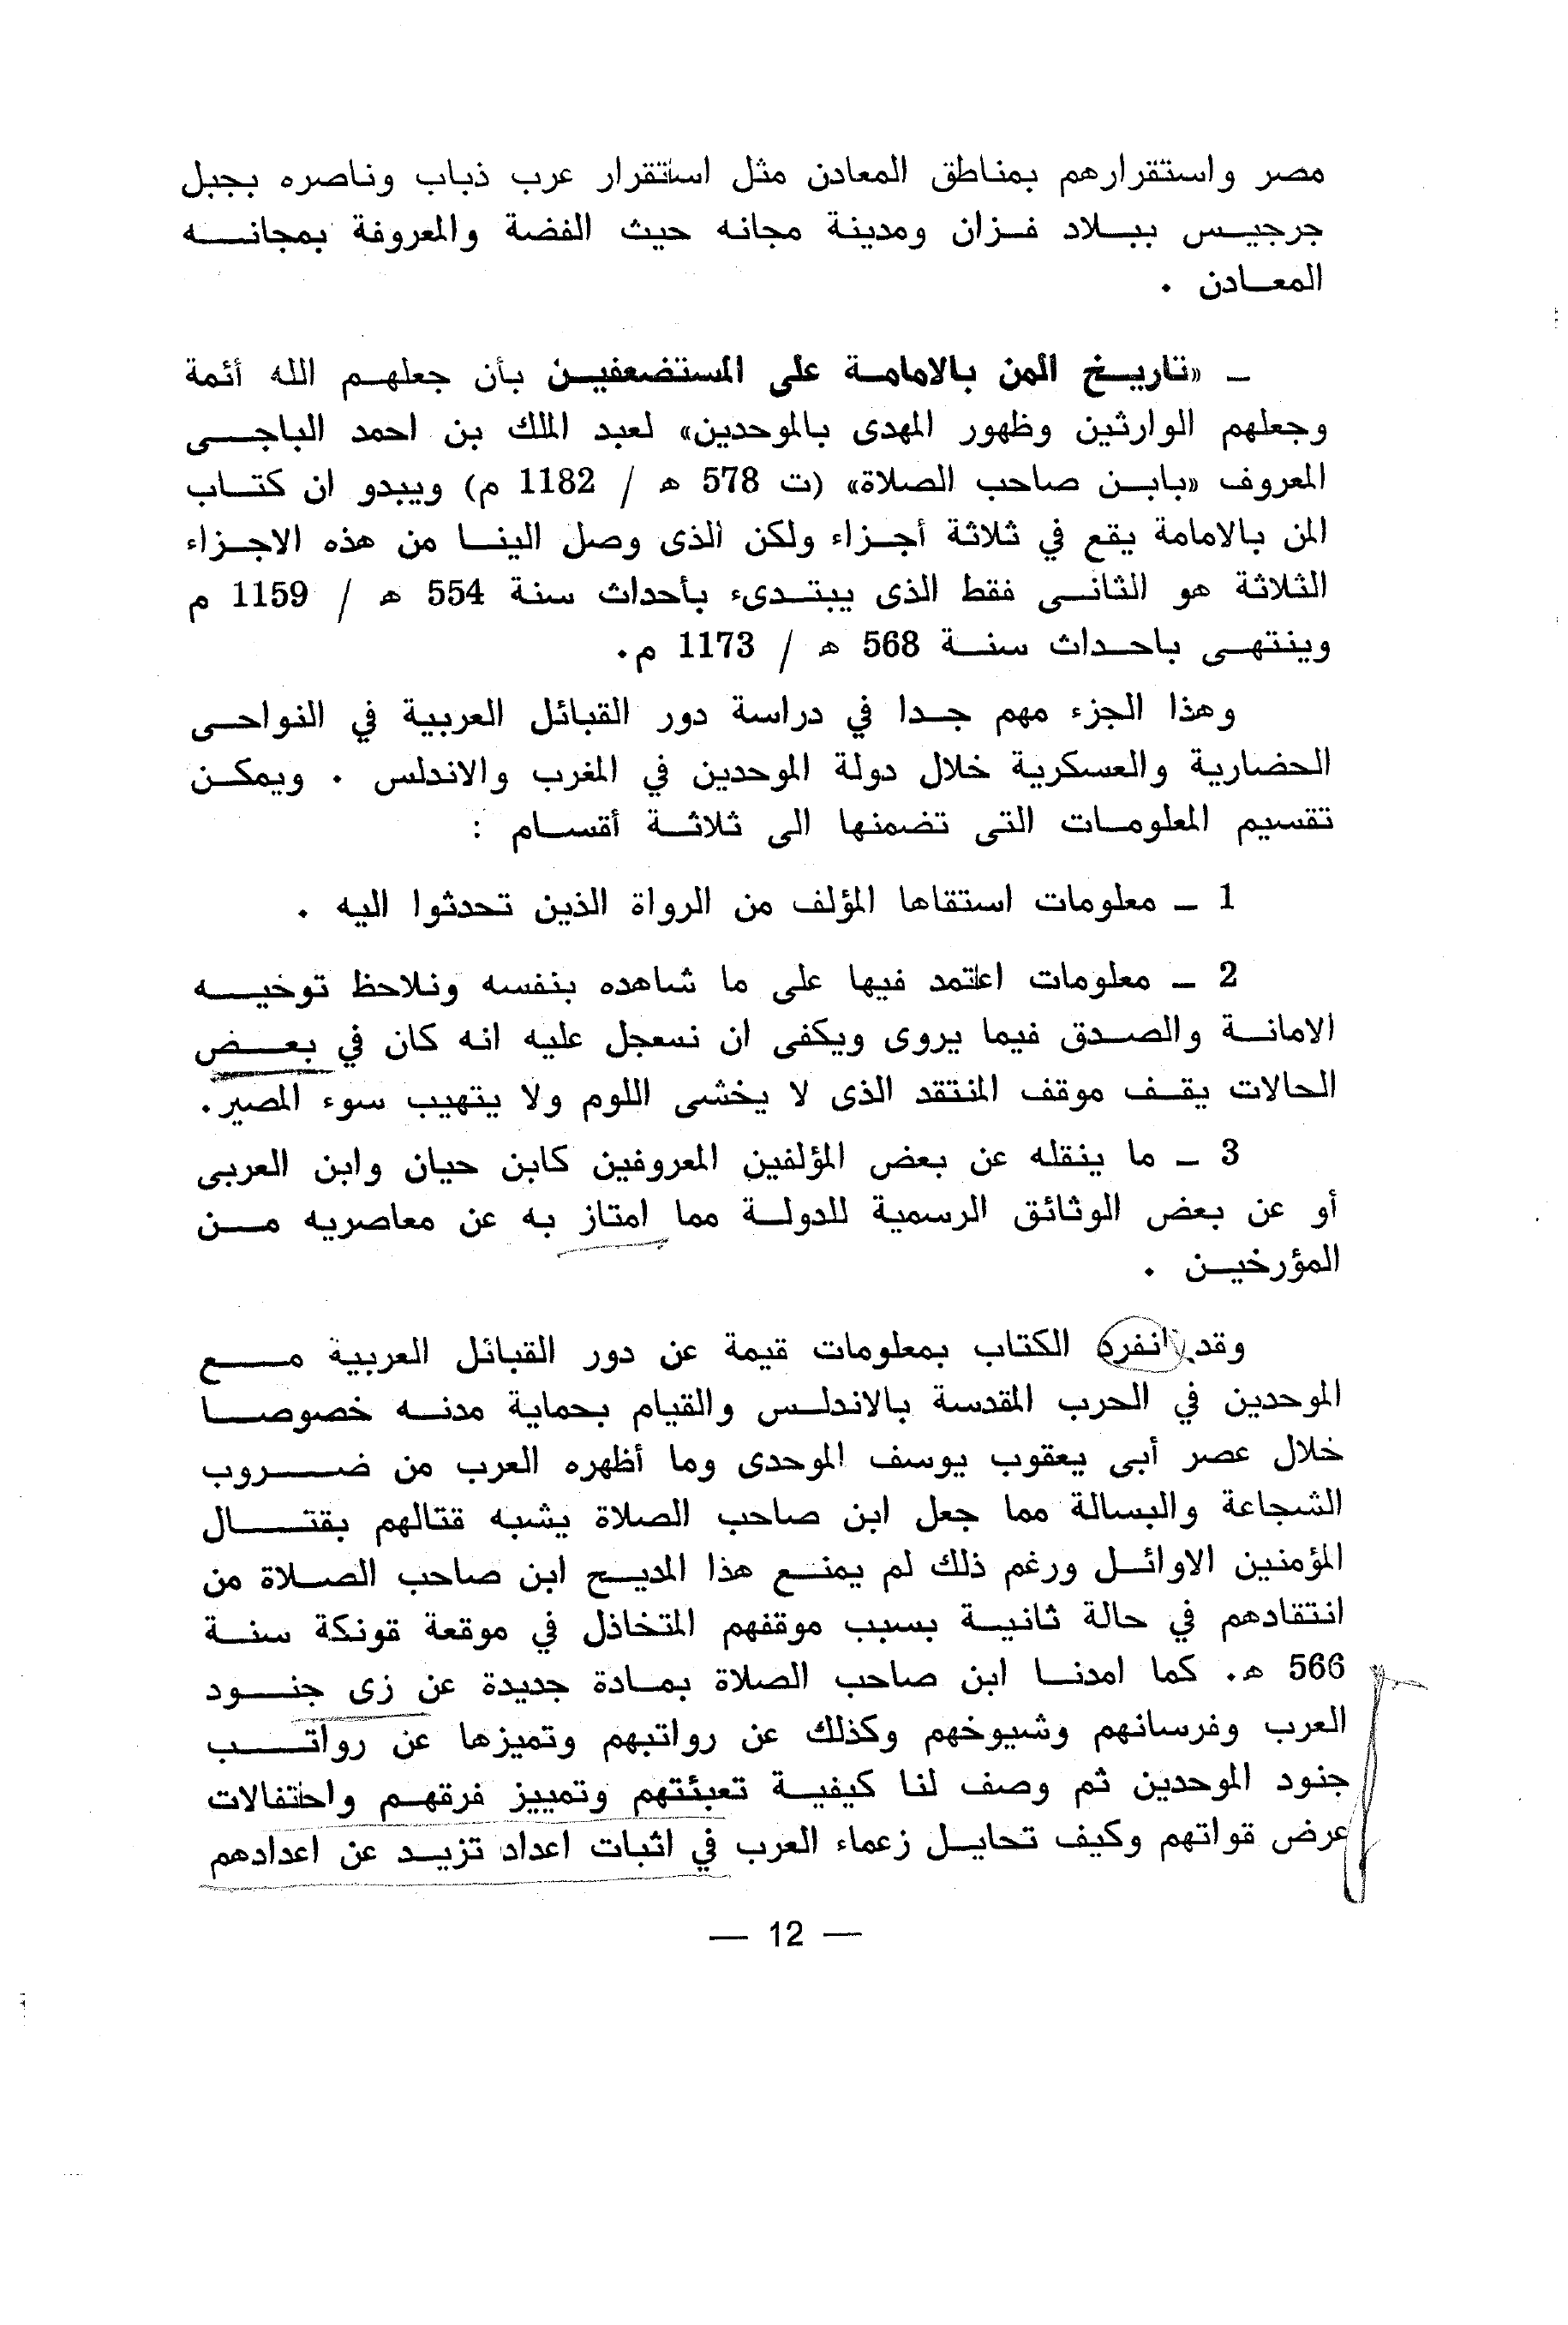 مصر واستقرارهم بمناطق المعادن مثل استقرار عرب ذباب وناصره بجبل
جرجيس ببلاد فزان ومدينة مجانه حيث الفضة والمعروفة بمجانه
المعادن .
ـ «تاريخ المن بالامامة على المستضعفين بأن جعلهم الله أئمة
وجعلهم الوارثين وظهور المهدى بالموحدين» لعبد الملك بن احمد الباجى
المعروف «بابن صاحب الصلاة» (ت 578 ه / 1182 م) ويبدو ان كتاب
المن بالامامة يقع في ثلاثة أجزاء ولكن الذى وصل الينا من هذه الاجزاء
الثلاثة هو الثانى فقط الذى يبتدىء بأحداث سنة 554 ه / 1159 م
وينتهى باحداث سنة 568 ه / 1173 م.
وهذا الجزء مهم جدا في دراسة دور القبائل العربية في النواحى
الحضارية والعسكرية خلال دولة الموحدين في المغرب والاندلس . ويمكن
تقسيم المعلومات التى تضمنها الى ثلاثة أقسام :
1 ـ معلومات استقاها المؤلف من الرواة الذين تحدثوا اليه .
2 ـ معلومات اعتمد فيها على ما شاهده بنفسه ونلاحظ توخيه
الامانة والصدق فيما يروى ويكفى ان نسجل عليه انه كان في بعض
الحالات يقف موقف المنتقد الذى لا يخشى اللوم ولا يتهيب سوء المصير.
3 ـ ما ينقله عن بعض المؤلفين المعروفين كابن حيان وابن العربى
أو عن بعض الوثائق الرسمية للدولة مما امتاز به عن معاصريه من
المؤرخين .
وقد انفرد الكتاب بمعلومات قيمة عن دور القبائل العربية مع
الموحدين في الحرب المقدسة بالاندلس والقيام بحماية مدنه خصوصا
خلال عصر أبى يعقوب يوسف الموحدى وما أظهره العرب من ضروب
الشجاعة والبسالة مما جعل ابن صاحب الصلاة يشبه قتالهم بقتال
المؤمنين الاوائل ورغم ذلك لم يمنع هذا المديح ابن صاحب الصلاة من
انتقادهم في حالة ثانية بسبب موقفهم المتخاذل في موقعة قونكة سنة
566 ه. كما امدنا ابن صاحب الصلاة بمادة جديدة عن زى جنود
العرب وفرسانهم وشيوخهم وكذلك عن رواتبهم وتميزها عن رواتب
جنود الموحدين ثم وصف لنا كيفية تعبئتهم وتمييز فرقهم واحتفالات
عرض قواتهم وكيف تحايل زعماء العرب في اثبات اعداد تزيد عن اعدادهم
— 12 —